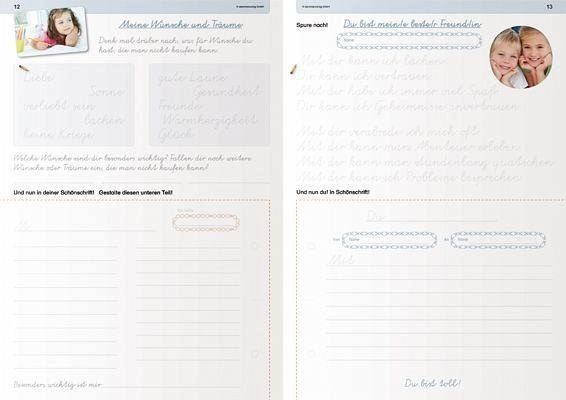 12
© sternchenverlag GmbH
Meine Wünsche und Träume
Denk mal drüber nach, was für Wünsche du
hast, die man nicht kaufen kann.
Liebe
Sonne
verliebt sein
lachen
keine Kriege
gute Laune
Gesundheit
Freunde
Warmherzigkeit
Glück
Welche Wünsche sind dir besonders wichtig? Fallen dir noch weitere
Wünsche oder Träume ein, die man nicht kaufen kann?
Und nun in deiner Schönschrift! Gestalte diesen unteren Teil!
Besonders wichtig ist mir
© sternchenverlag GmbH
13
Spure nach!
Du bist mein/e beste/r Freund/in
Name
Mit dir kann ich lachen.
Dir kann ich vertrauen.
Mit dir habe ich immer viel Spaß.
Dir kann ich Geheimnisse anvertrauen.
Mit dir verabrede ich mich oft.
Mit dir kann man Abenteuer erleben.
Mit dir kann man stundenlang quatschen.
Mit dir kann ich Probleme besprechen.
Und nun du! In Schönschrift!
Du
Von Name
An Name
Mit
Du bist toll!